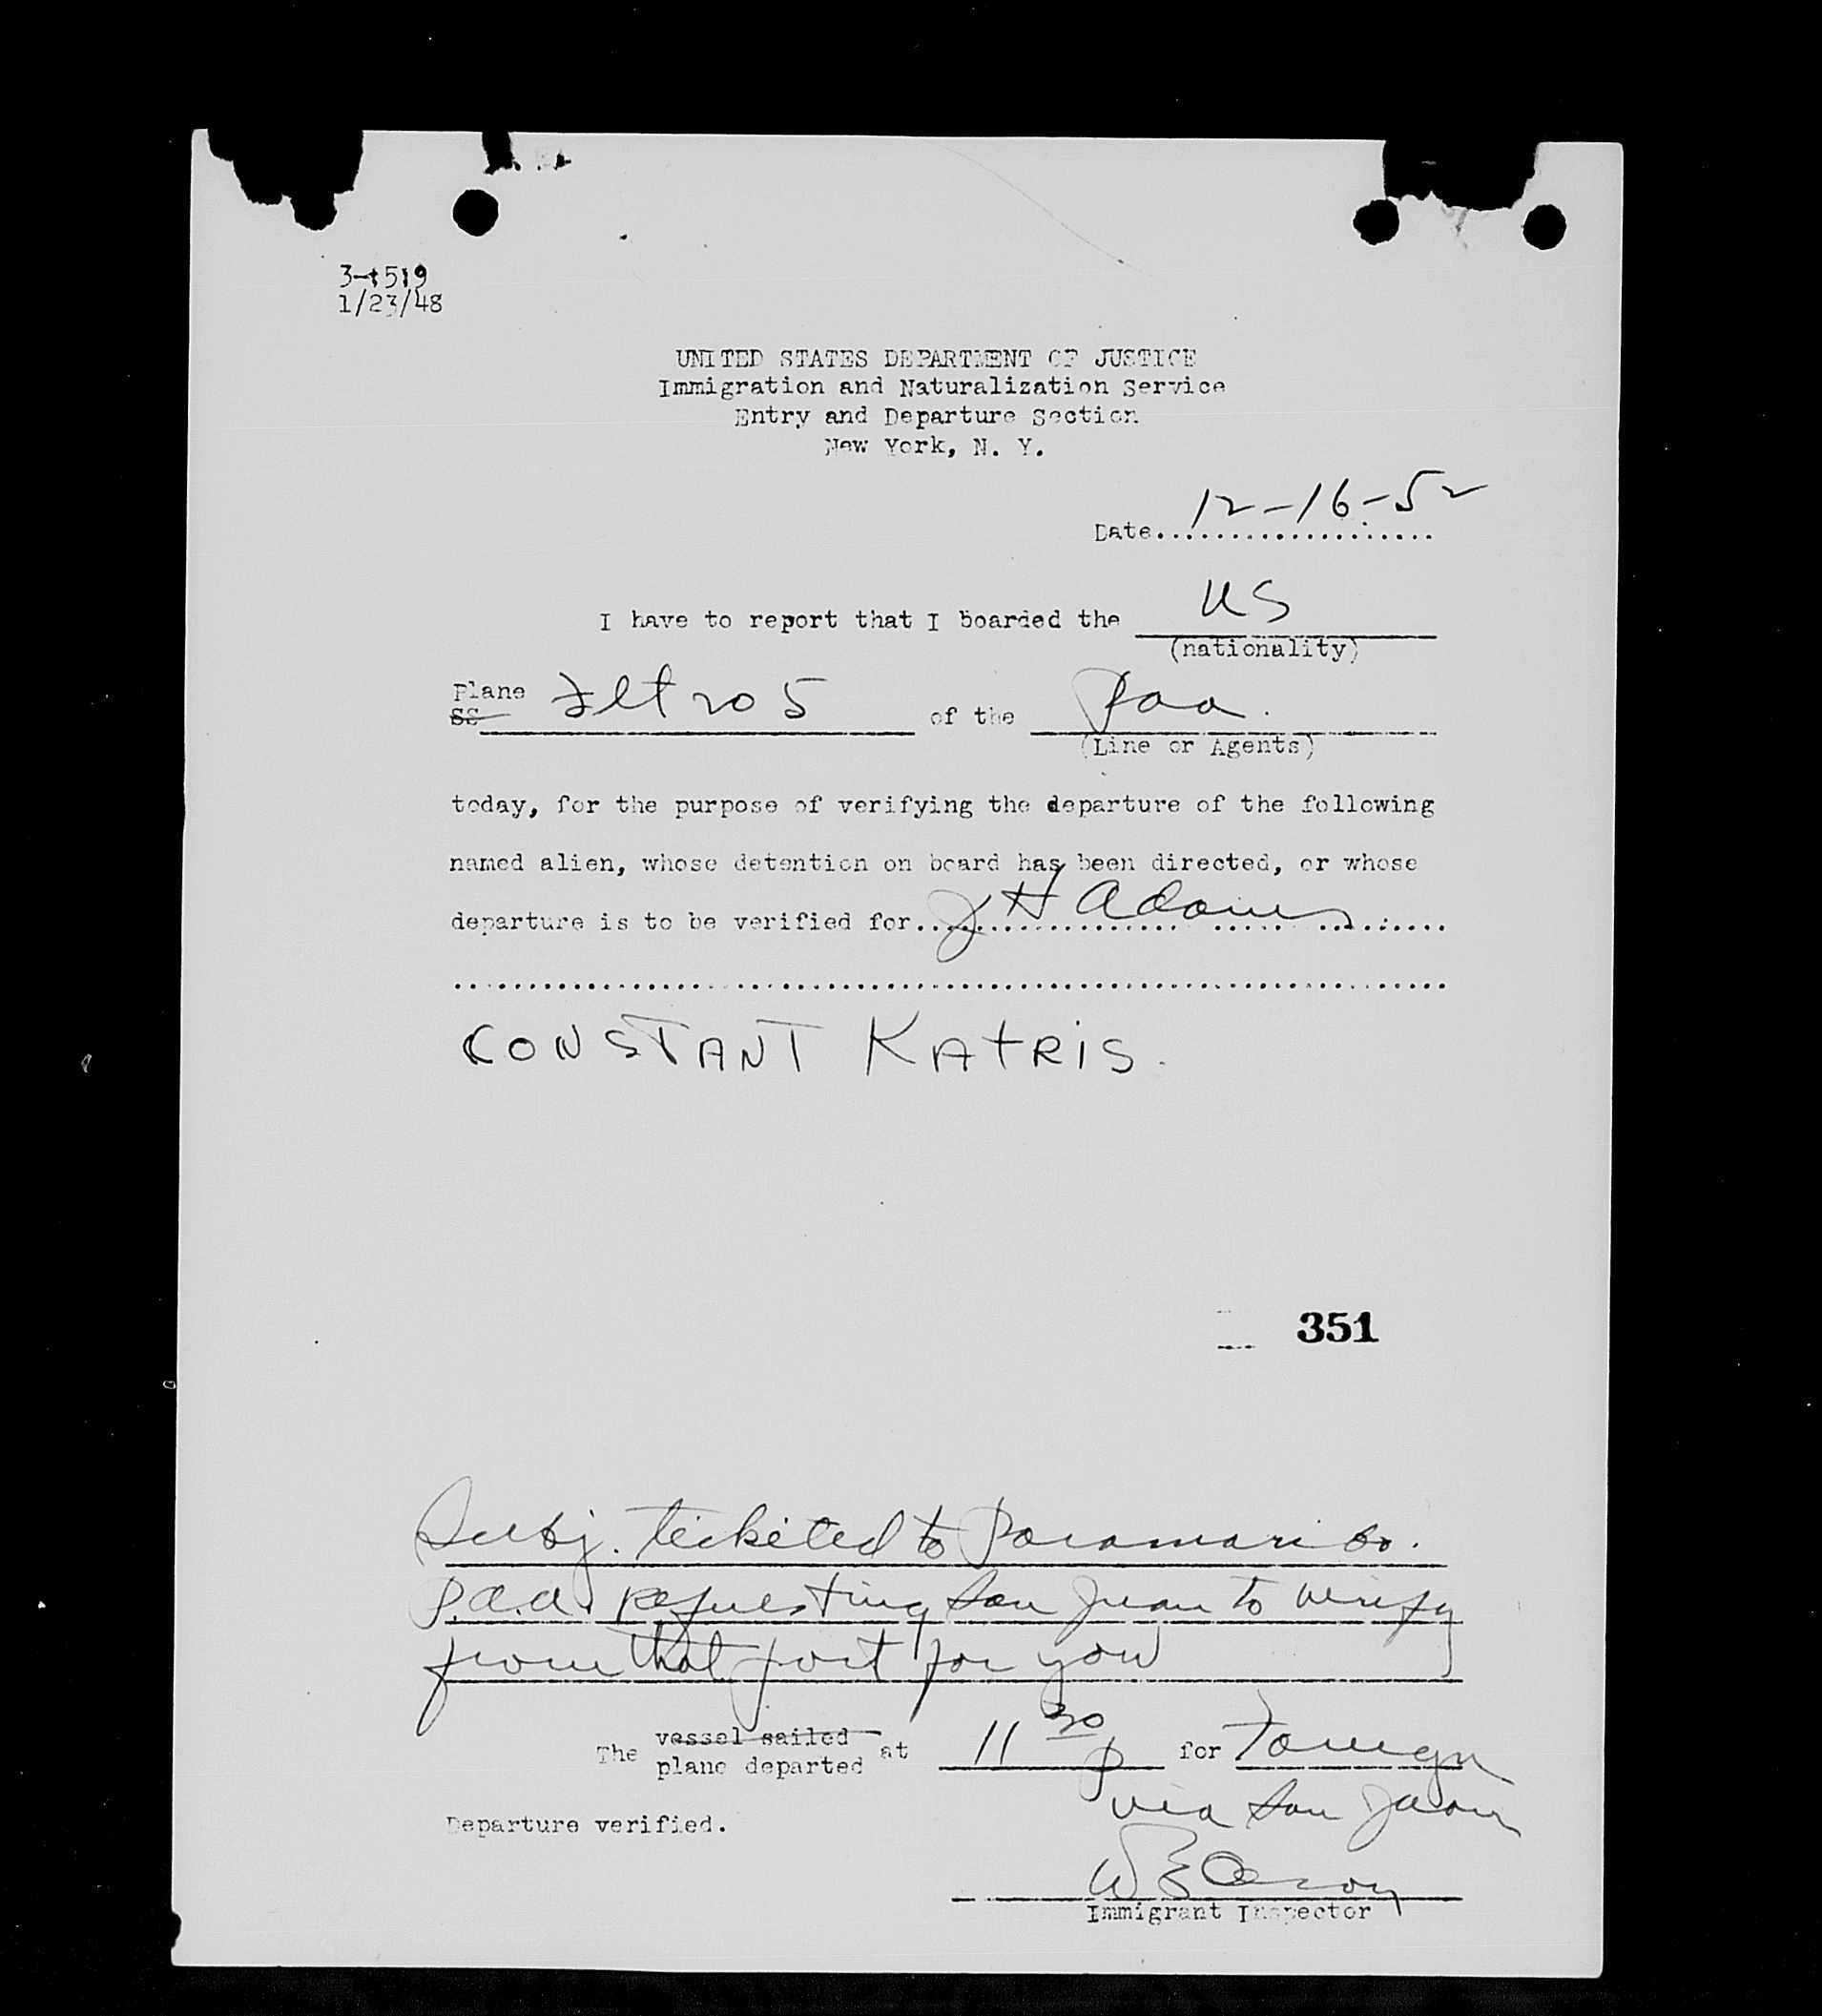 3-1519
1/23/48
UNITED STATES DEPARTMENT OF JUSTICE
Immigration and Naturalization Service
Entry and Departure Section
New York, N. Y.
Date 12-16-52
I have to report that I boarded the US
(nationality)
Plane
SS Flt 205 of the Paa.
(Line or Agents)
today, for the purpose of verifying the departure of the following
named alien, whose detention on board has been directed, or whose
departure is to be verified for J H Adams
CONSTANT KATRIS.
351
Subj. ticketed to Paramaribo.
P.a.a. requesting San Juan to verify
from that port for you
The vessel sailed
plane departed at 11 30 p for Foreign
via San Juan
Departure verified.
W E
Immigrant Inspector